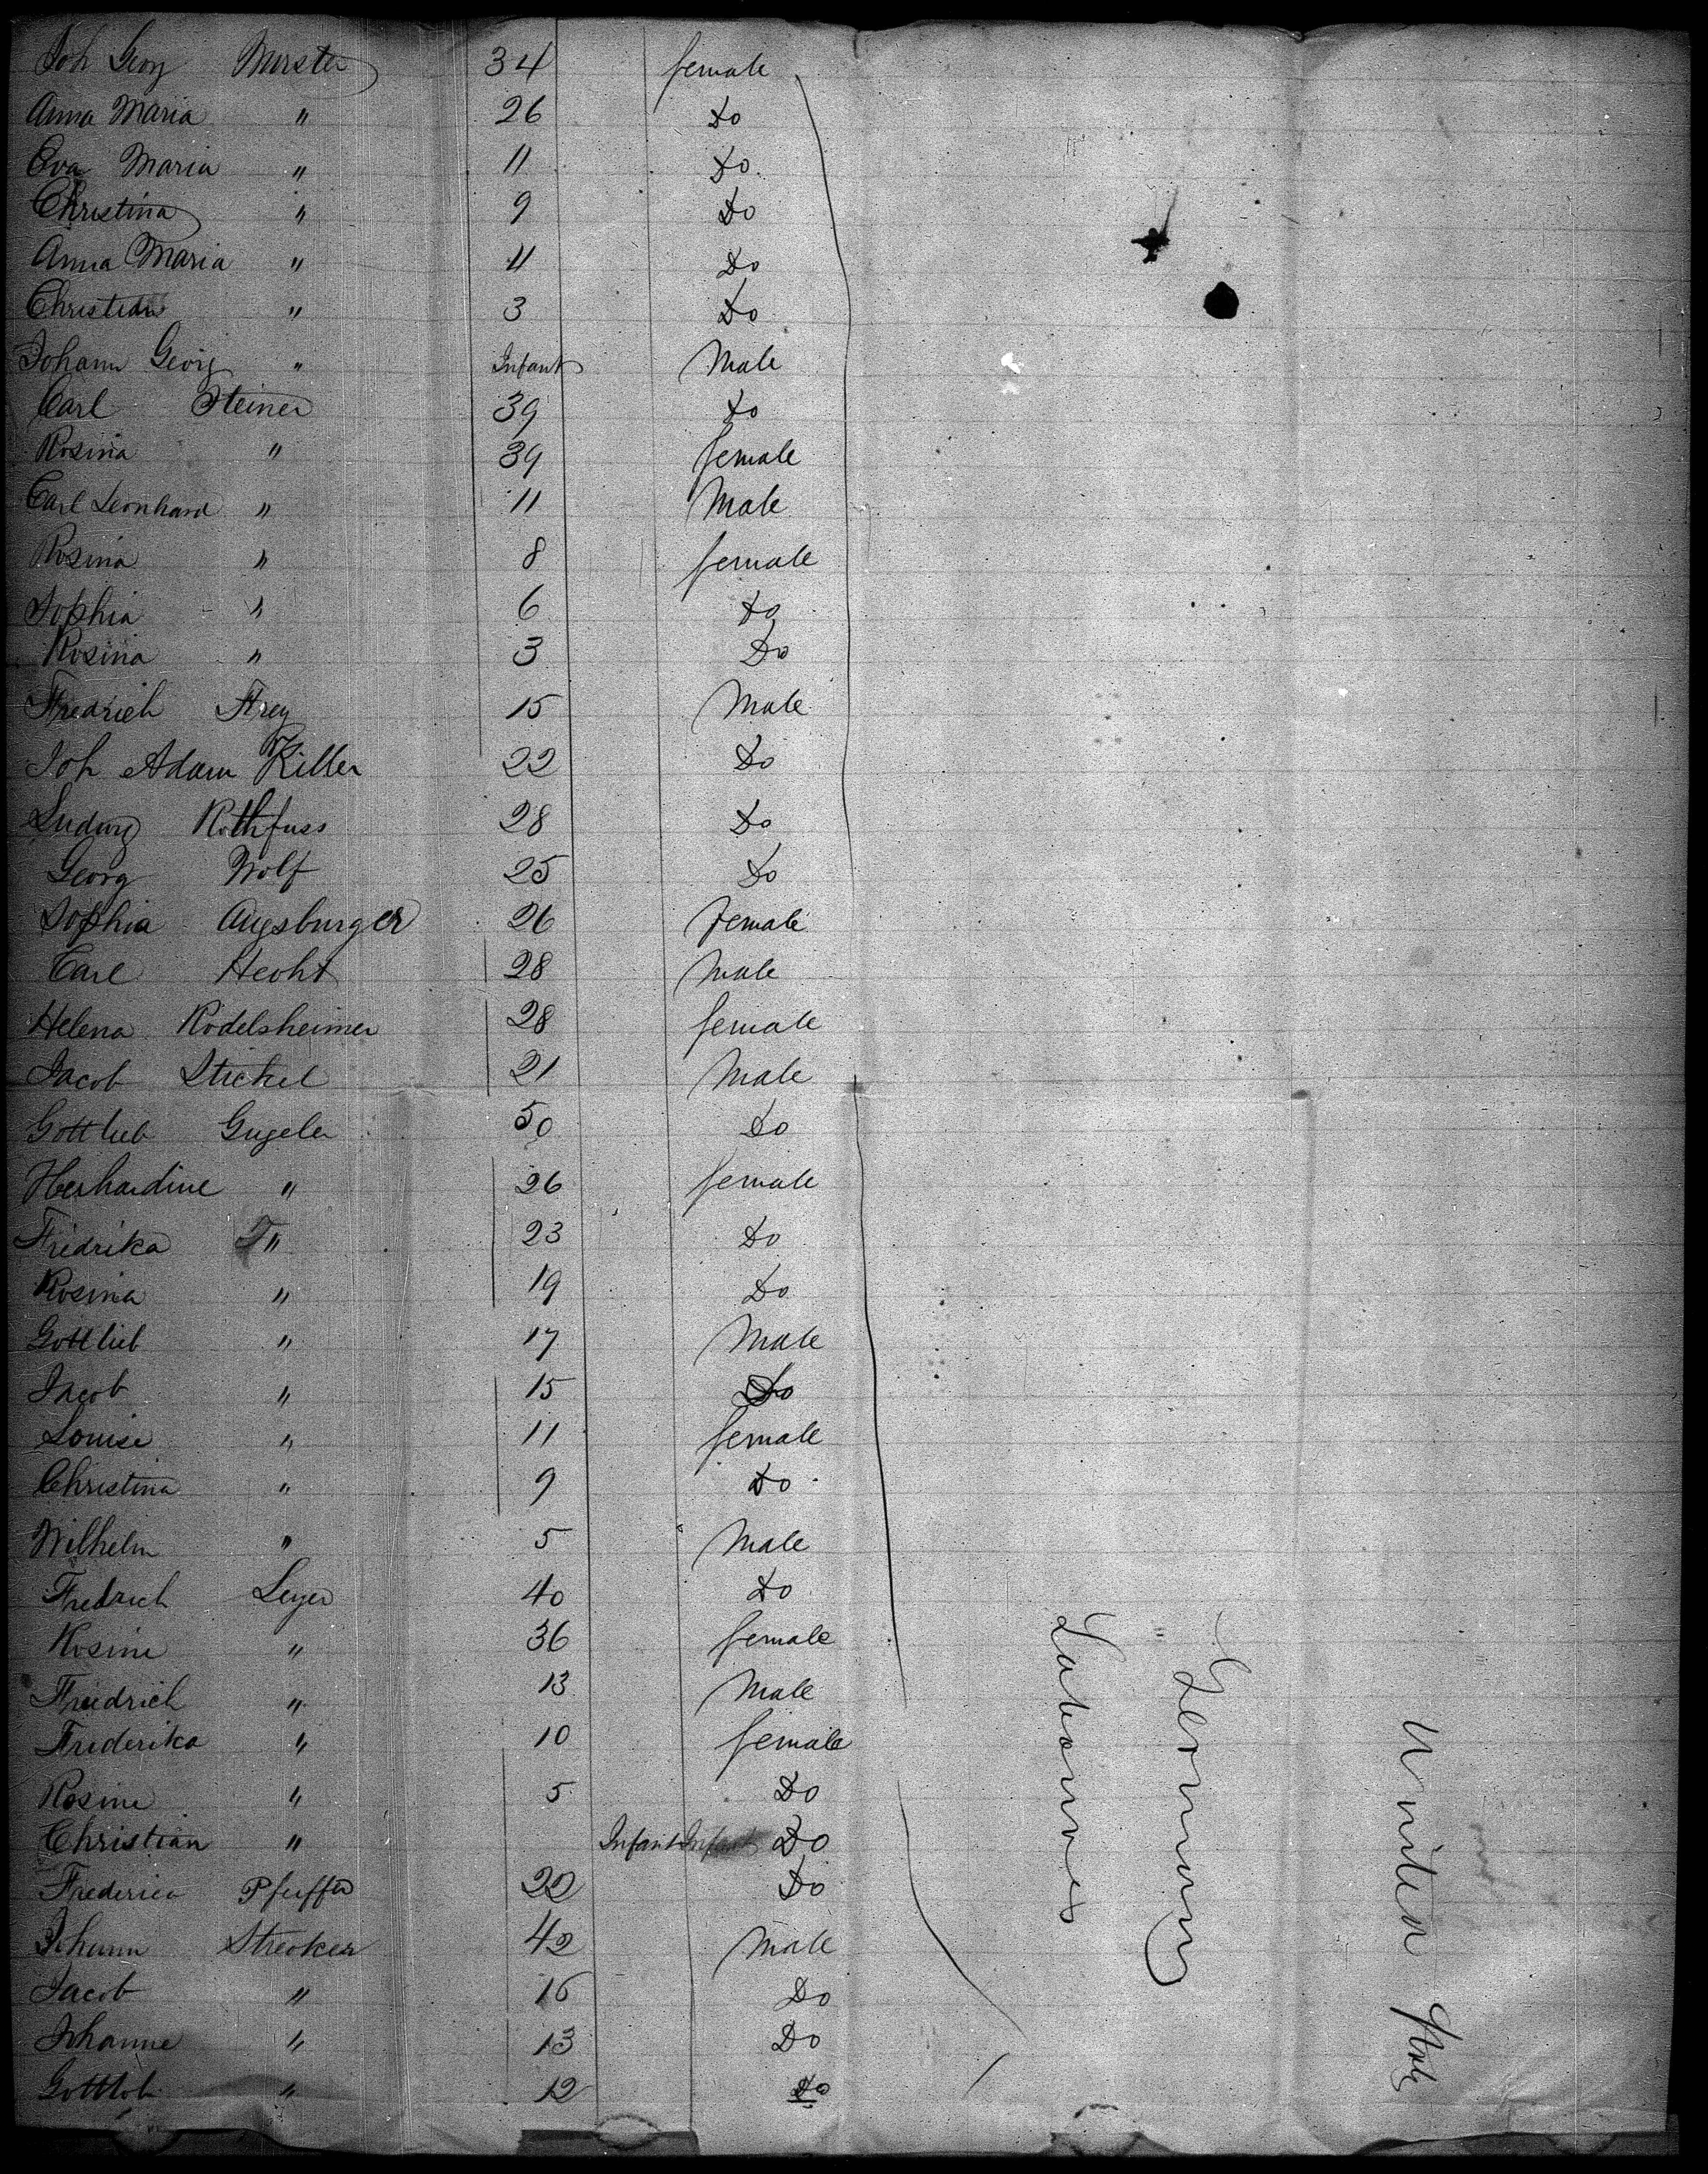 Joh Georg Wurster 34 female
Anna Maria " 26 Do
Eva Maria " 11 Do
Christina " 9 Do
Anna Maria " 4 Do
Christian " 3 Do
Johann Georg " Infant Male
Carl Steiner 39 Do
Rosina " 39 female
Carl Leonhard " 11 Male
Rosina " 8 female
Sophia " 6 Do
Rosina " 3 Do
Fredrich Frey 15 Male
Joh Adam Killer 22 Do
Ludwig Rothfuss 28 Do
Georg Wolf 25 Do
Sophia Augsburger 26 female
Carl Hecht 28 Male
Helena Rodelsheimer 28 female
Jacob Stickel 21 Male
Gottlieb Gugeler 50 Do
Herhardine " 26 female
Fridrika " 23 Do
Rosina " 19 Do
Gottlieb " 17 Male
Jacob " 15 Do
Louise " 11 female
Christina " 9 Do
Wilhelm " 5 Male
Fredrich Leyer 40 Do
Rosine " 36 female
Friedrich " 13 Male
Friderika " 10 female
Rosine " 5 Do
Christian " Infant Infant Do
Frederica Pfeiffer 22 Do
Johann Strecker 42 Male
Jacob " 16 Do
Johanne " 13 Do
Gottlob " 12 Do
Labourers
Germany
United Stats